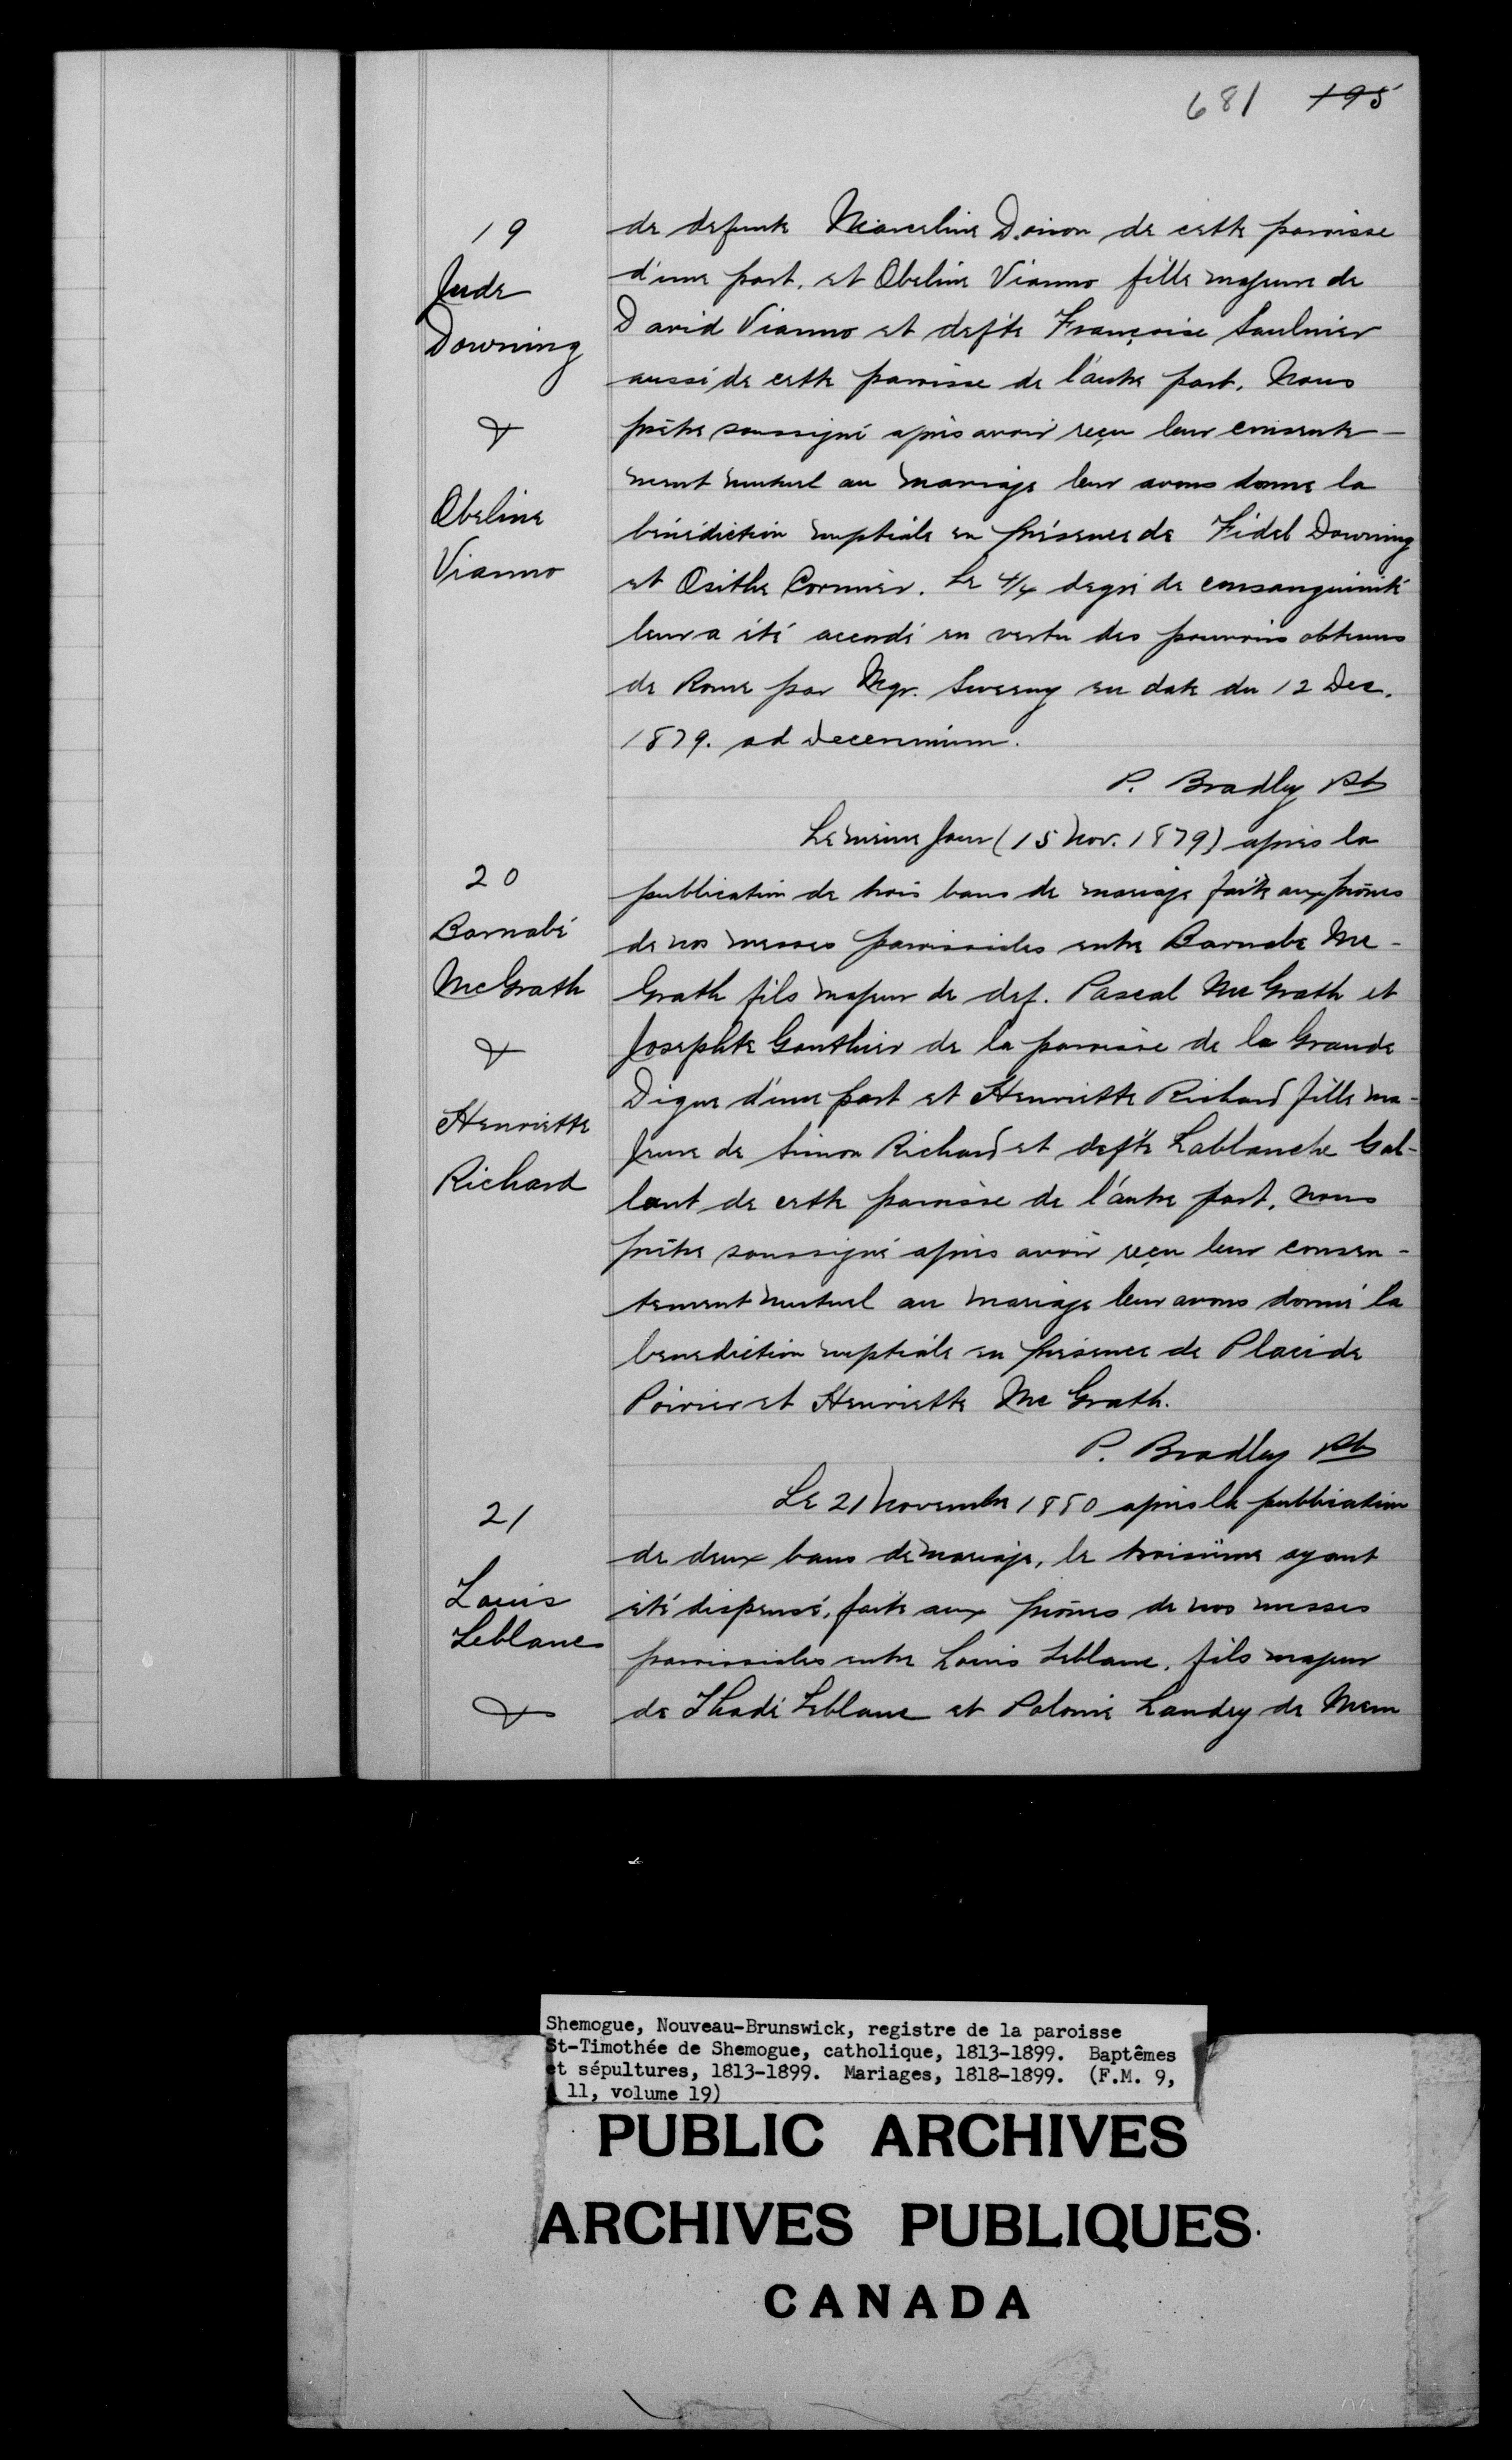 681 195
19
Jude
Downing
&
Obeline
Vianno
de defunte Marceline Doiron de cette paroisse
d'une part, et Obeline Vianno fille majeure de
David Vianno et defte Françoise Saulnier
aussi de cette paroisse de l'autre part. Nous
prêtre soussigné après avoir reçu leur consente-
ment mutuel au mariage leur avons donne la
bénédiction nuptiale en présence de Fidel Downing
et Osithe Cormier. Le 4/4 degré de consanguinité
leur a été accordé en vertu des pouvoirs obtenus
de Rome par Mgr. Sweeny en date du 12 Dec.
1879. ad decennium.
P. Bradley Pt
20
Barnabé
McGrath
&
Henriette
Richard
Le même jour (15 Nov. 1879) après la
publication de trois bans de mariage faite aux prônes
de nos messes paroissiales entre Barnabe Mc-
Grath fils majeur de def. Pascal McGrath et
Josephte Gauthier de la paroisse de la Grande
Digue d'une part et Henriette Richard fille ma-
jeure de Simon Richard et defte Lablanche Gal-
lant de cette paroisse de l'autre part, nous
prêtre soussigné après avoir reçu leur consen-
tement mutuel au mariage leur avons donné la
benediction nuptiale en présence de Placide
Poirier et Henriette Mc Grath.
P. Bradley Pt
21
Louis
Leblanc
&
Le 21 Novembre 1880 après la publication
de deux bans de mariage, le troisième ayant
été dispensé, faite aux prônes de nos messes
paroissiales entre Louis Leblanc, fils majeur
de Thadé Leblanc et Polonie Landry de Mem
Shemogue, Nouveau-Brunswick, registre de la paroisse
St-Timothée de Shemogue, catholique, 1813-1899. Baptêmes
et sépultures, 1813-1899. Mariages, 1818-1899. (F.M. 9,
11, volume 19)
PUBLIC ARCHIVES
ARCHIVES PUBLIQUES
CANADA